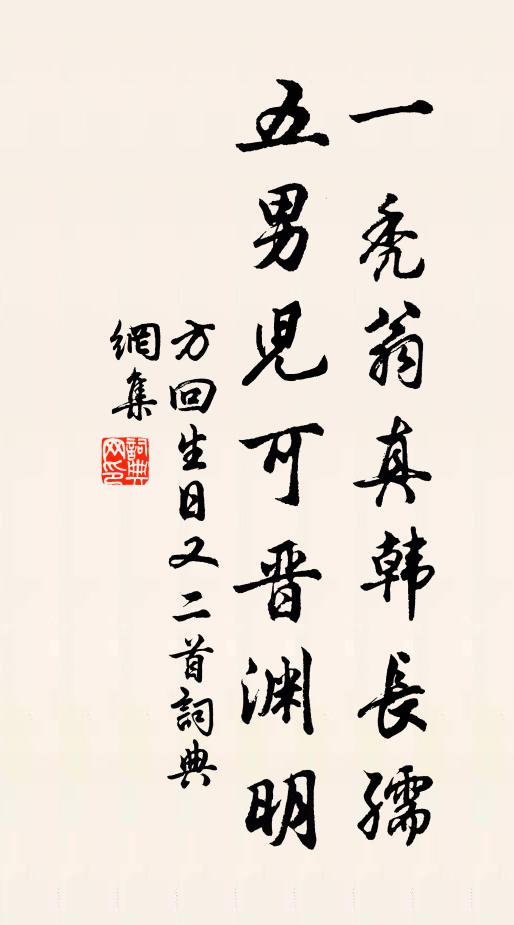 一秃翁真韩長孺
五男児可晋渊明
方回生日又二首詞典
網集
詞典网印